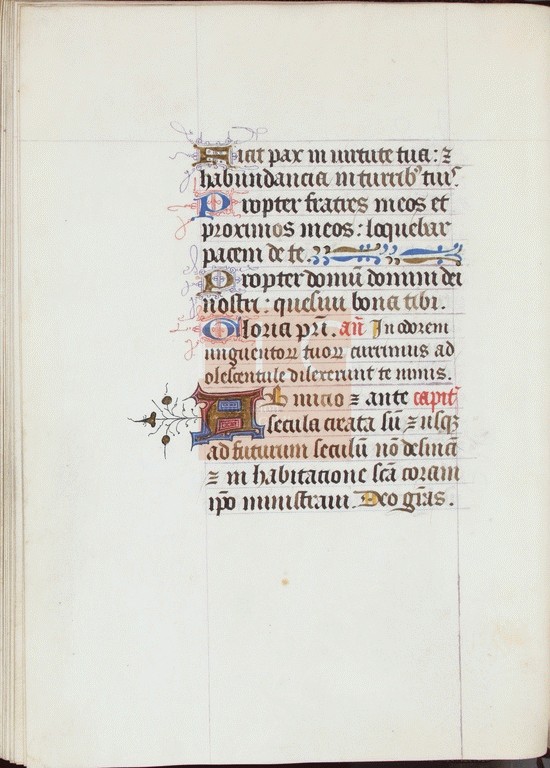 Fiat pax in uirtute tua: ⁊
habundancia in turribꝰ tuis.
Propter fratres meos et
proximos meos: loquebar
pacem de te.
Propter domū domini dei
nostri: quesiui bona tibi.
Gloria pr̄i. an̄ In odorem
unguentoꝝ tuoꝝ currimus ad
olescentule dilexerunt te nimis.
Ab inicio ⁊ ante capitl̄
secula creata sū ⁊ usqꝫ
ad futurum seculū nō desinā
⁊ in habitacione scā coram
ip̄o ministraui. Deo grās.